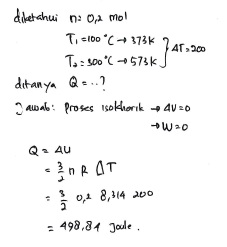 diketahui n = 0,2 mol
T₁ = 100 °C → 373K
T₂ = 300 °C → 573K } ΔT = 200
ditanya Q = ..?
Jawab: Proses isokhorik → ΔV = 0
→ W = 0
Q = ΔU
= 3/2 n R ΔT
= 3/2 0,2 8,314 200
= 498,84 Joule.